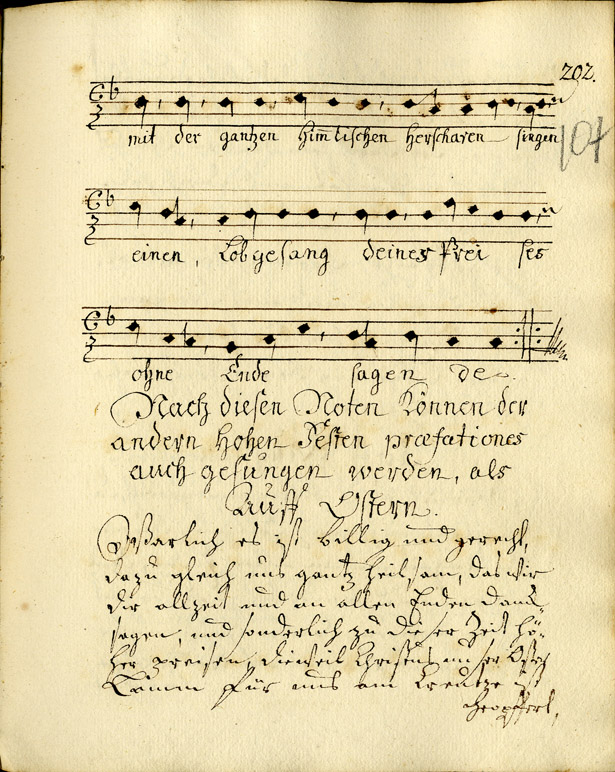 202.
mit der gantzen Him̃lischen Herscharen singen
104
einen, Lobgesang deines Prei ses
ohne Ende sagen de
Nach diesen Noten können der
andern hohen Festen præfationes
auch gesungen werden, als
Auff Ostern.
Warlich es ist billig und gerecht,
dazu gleich uns gantz heilsam, das wir
dir allzeit und an allen Enden danck
sagen, und sonderlich zu dieser Zeit hö-
her preisen, dieweil Christus unser Oster
Lamm für uns am Creutze ist
geopffert,